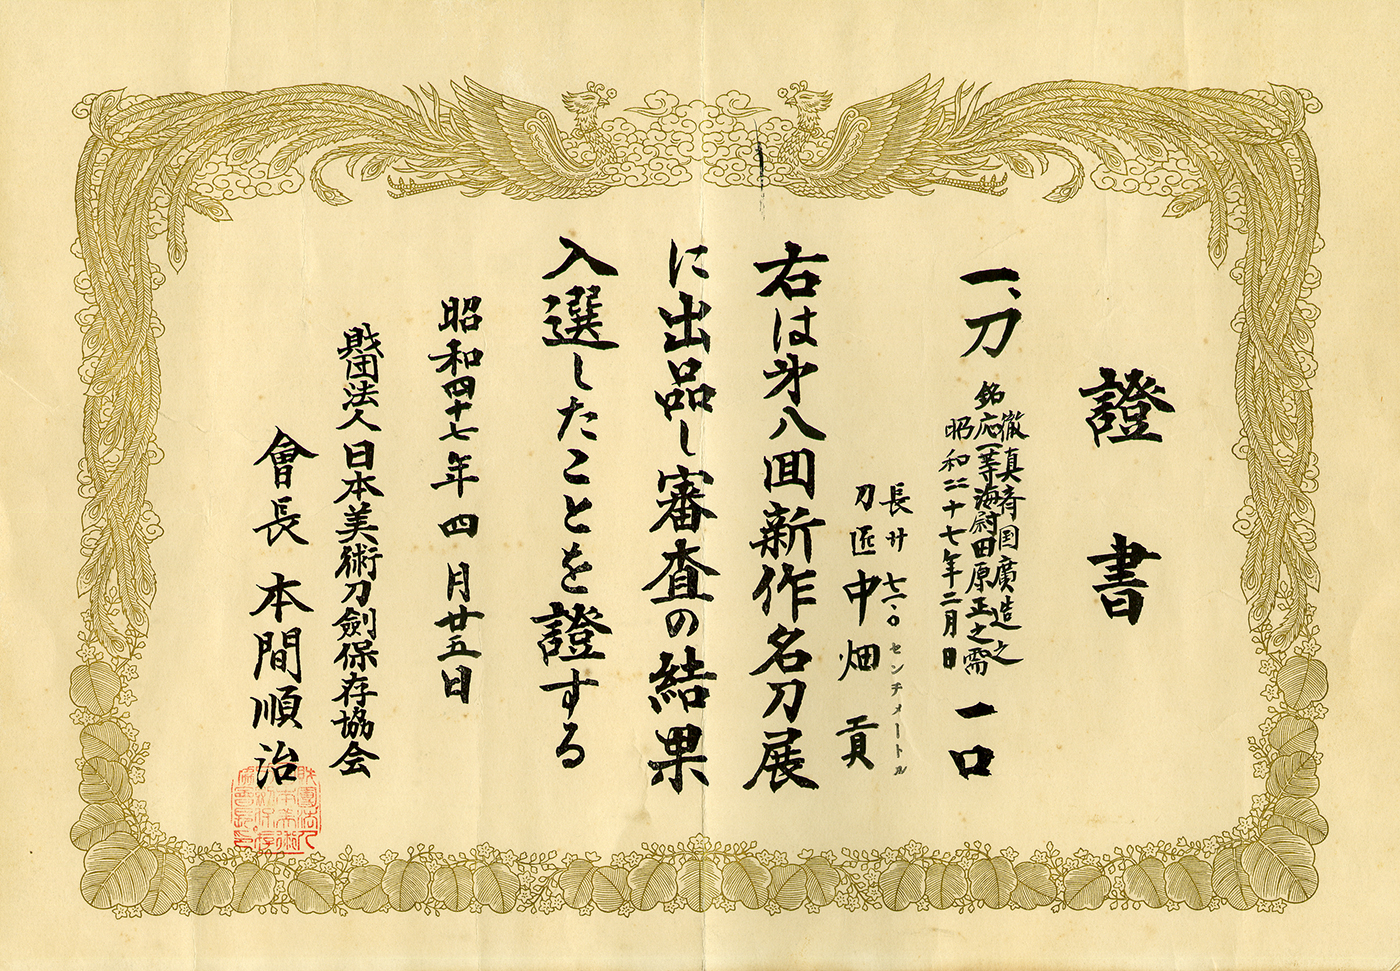 證書
一、刀
銘
徹真斉国廣造之
応一等海尉田原正之需
昭和二十七年二月日
一口
長サ 七二・〇センチメートル
刀匠 中畑 貢
右は㐧八回新作名刀展
に出品し審査の結果
入選したことを證する
昭和四十七年四月廿五日
財団法人日本美術刀劍保存協会
會長 本間順治